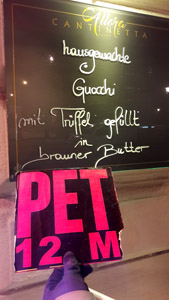 Allora
CANTINETTA
hausgemachte
Gnocchi
mit Trüffel gefüllt...
in
brauner Butter
PET
12 M